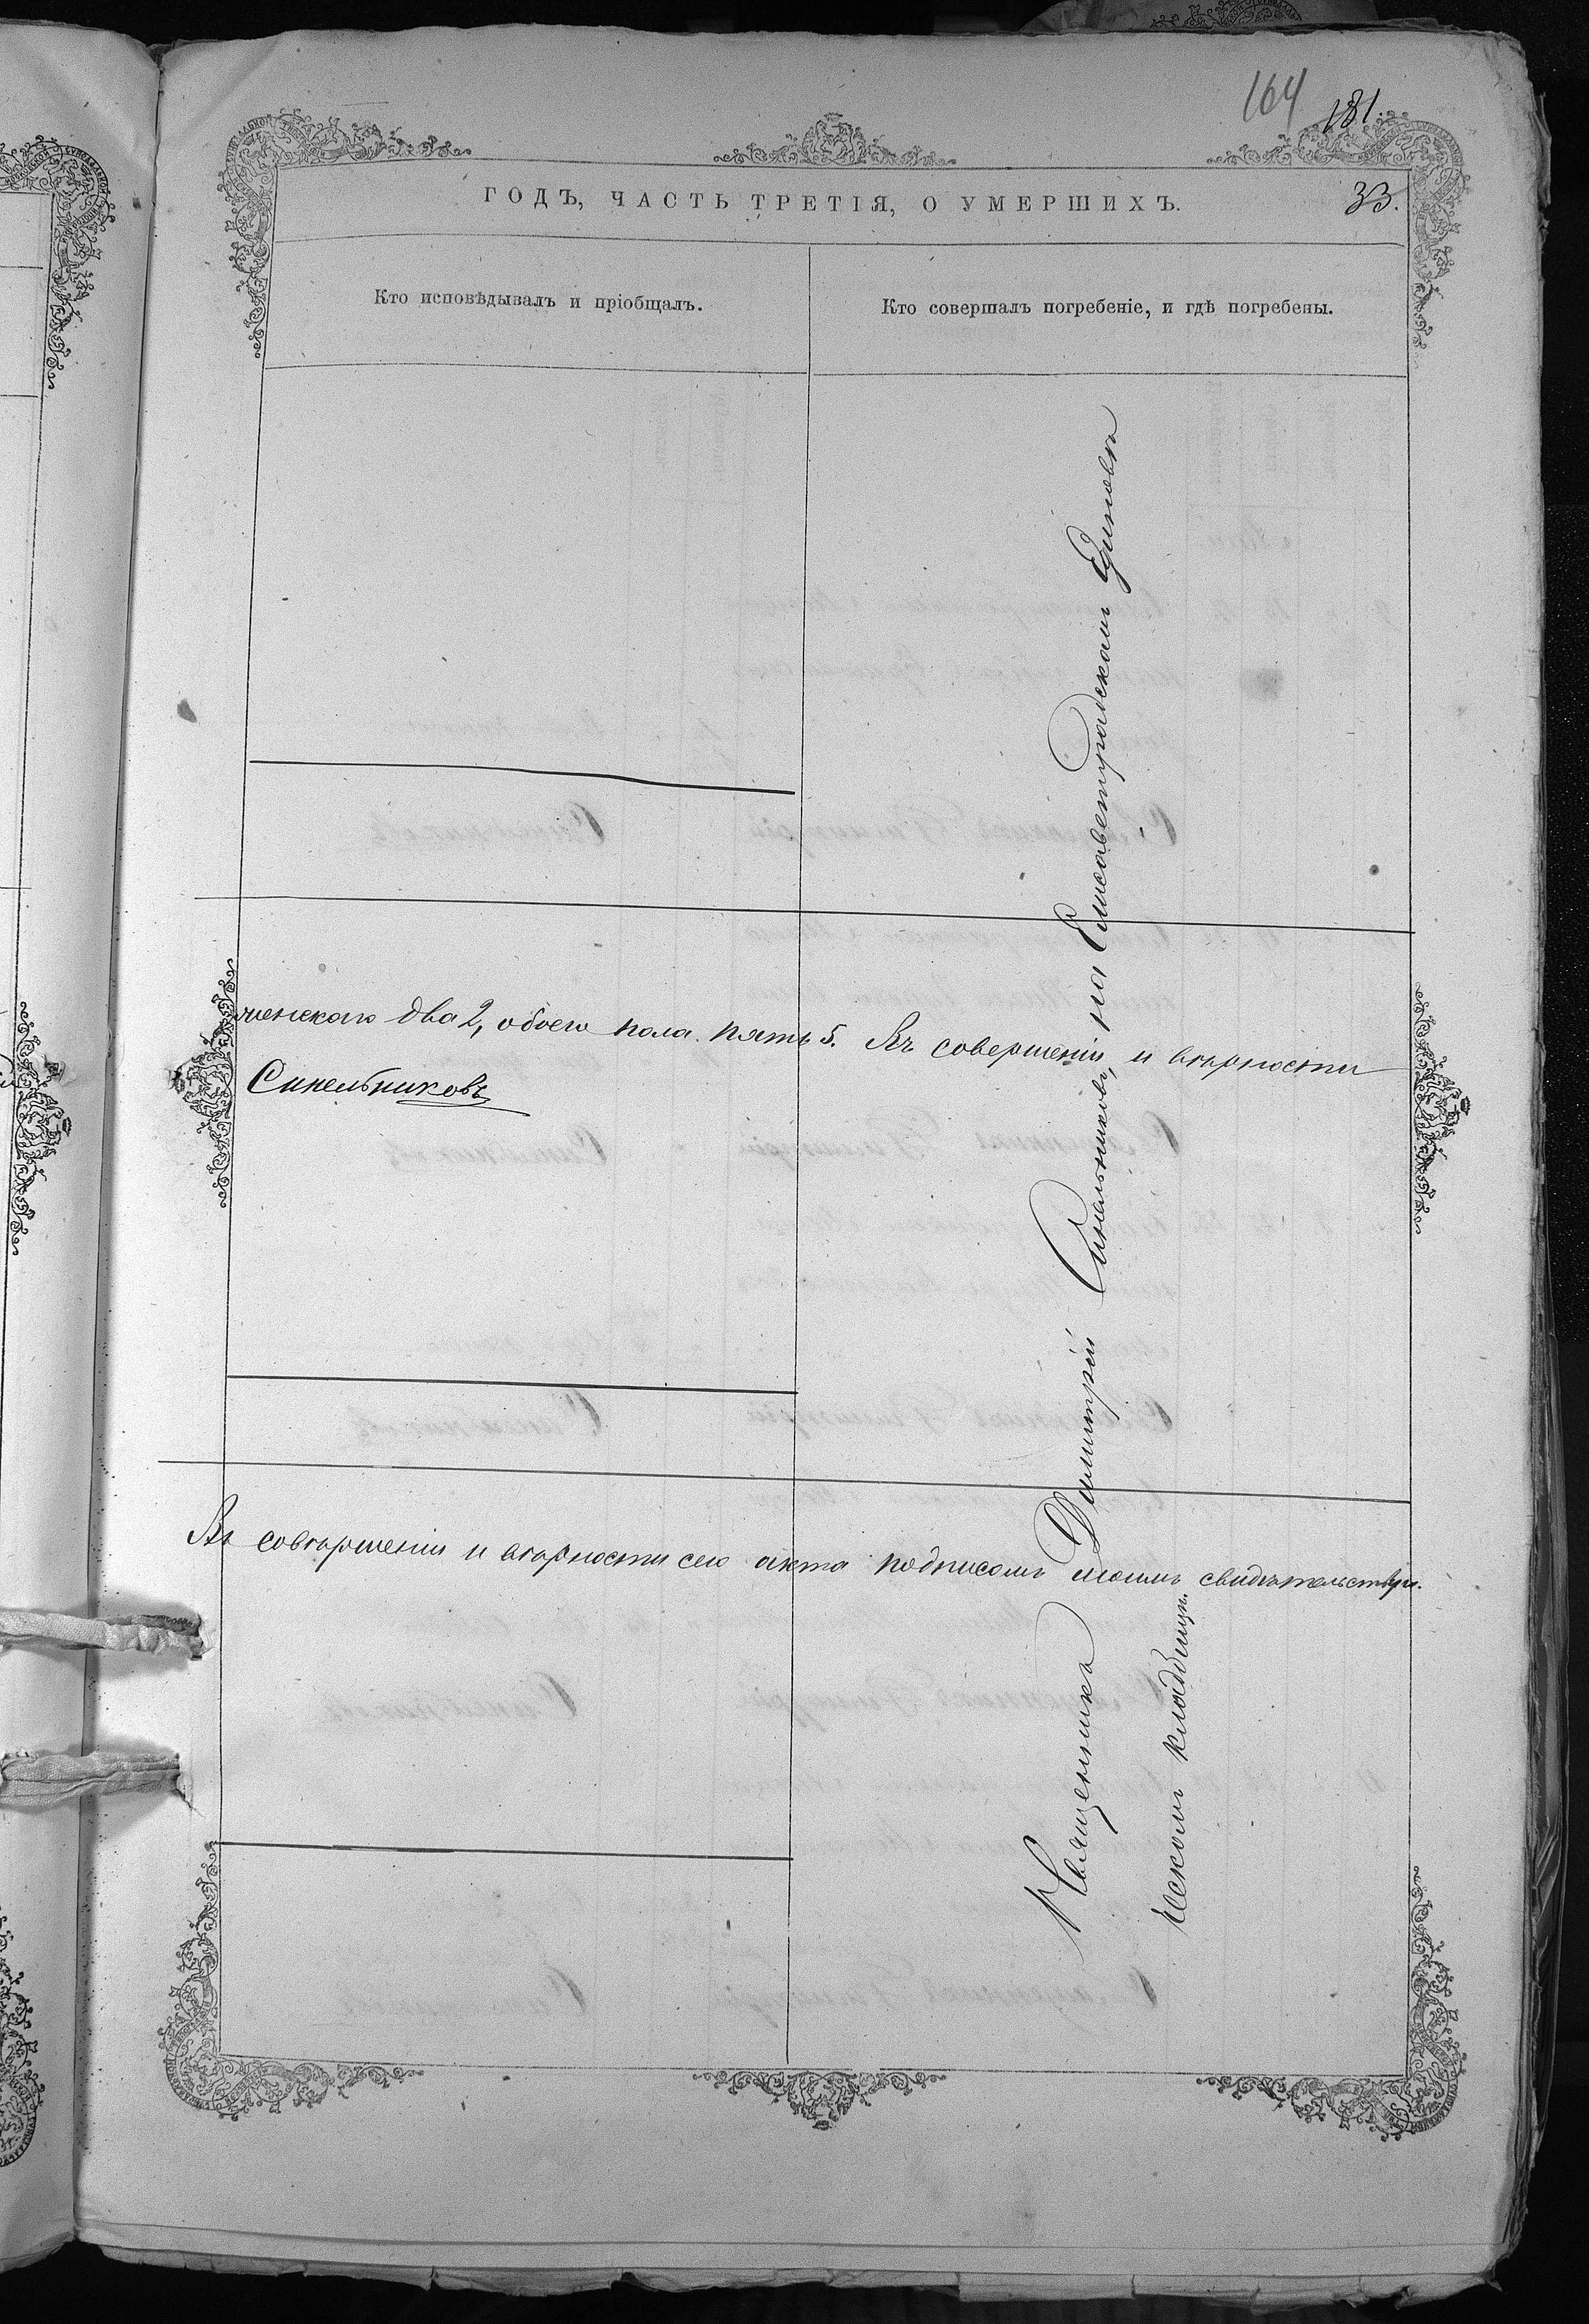 164
181.
ГОДЪ, ЧАСТЬ ТРЕТІЯ, О УМЕРШИХЪ.
33.
Кто исповѣдывалъ и пріобщалъ.
Кто совершалъ погребеніе, и гдѣ погребены.
женскаго два 2, обоего пола пять 5. Въ совершеніи и вѣрности
Синельниковъ
Въ совершеніи и вѣрности сего акта подписомъ моимъ свидѣтельствую.
Священникъ Димитрій Синельниковъ, на Елисаветградскомъ Единовѣр
ческомъ кладбищѣ.